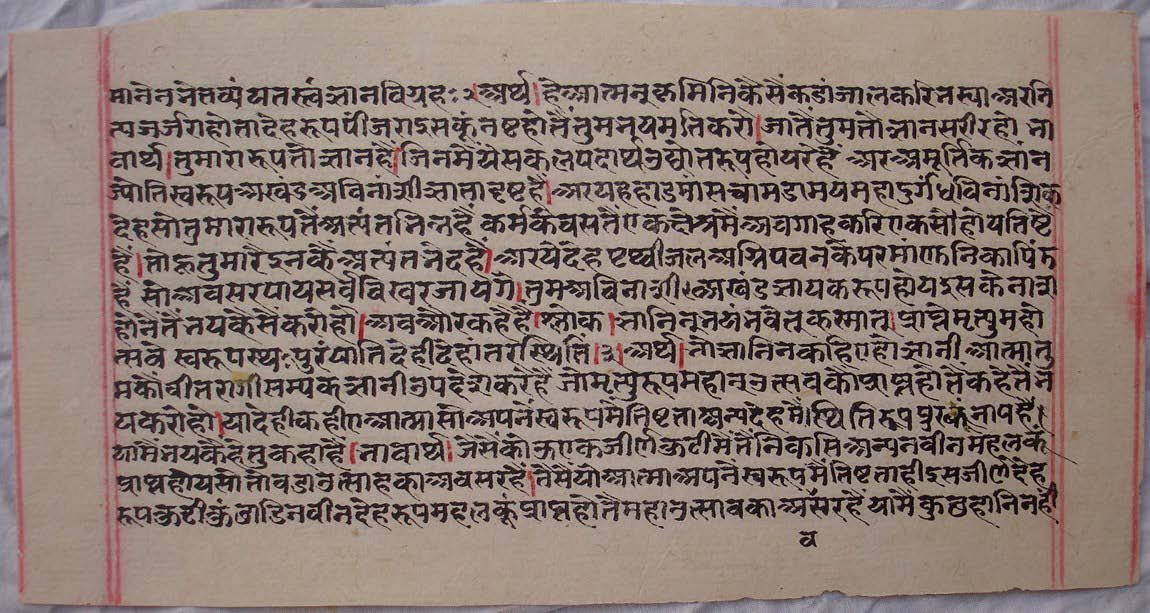 मानेन नेतव्यं यतस्त्वं ज्ञानविग्रहः २ अर्थ हे आत्मन् कृमिनिकै सैंकडां जालकरि नस्या अर नि
त्य जर्जरा होता देहरूप पींजरा इसकूं नष्ट होतैं तुम नय मति करो जातैं तुम तौ ज्ञान सरीर हो ना
वार्थ तुमारा रूप तौ ज्ञान है जिनमैं ये सकल पदार्थ उद्योतरूप होय रहे हैं अर अमूर्तिक ज्ञान
ज्योतिस्वरूप अखंड अविनाशी ज्ञाता दृष्ट है अर यह हाड मांस चामडामय महादुर्गंध विनाशिक
देह सो तुमारा रूपतैं अत्यंत निन्न है कर्मकै वसतैं एक क्षेत्रमैं अवगाह करि एकसो होय तिष्टै
हैं तोहू तुमारै इनकै अत्यंत नेद है अर ये देह पृथ्वी जल अग्नि पवनकै परमांणूनिका पिंड
है सो अवसर पाय सर्व विखर जायगे तुम अविनाशी अखंड ज्ञायकरूप होय इसके नाश
होनेतैं नय कैसै करो हो अब और कहै है श्लोक ज्ञानिन् नयं नवेत् कस्मात् प्राप्ते मृत्युमहो
त्सवे स्वरूपस्थः पुरं याति देही देहांतरस्थितिं ३ अर्थ नो ज्ञानिन कहिए हो ज्ञानी आत्मा तु
मकौ वीतरागी सम्यक ज्ञानी उपदेश करे है जो मृत्युरूप महान उत्सवकौ प्राप्त होतै काहेतैं न
य करो हो यो देही कहीए आत्मा सो आपनै स्वरूपमै तिष्टता अन्य देहमै स्थितिरूप पुरकूं जाय है
यामैं नयकै हेतु कहा है नावार्थ जैसै कोऊ एक जीर्ण कुटीमैंतैं निकसि अन्य नवीन महलकूं
प्राप्त होय सो तो वडा उत्साहका अवसर है तैसै यो आत्मा अपनै स्वरूपमैं तिष्टताही इस जीर्ण देह
रूप कुटीकूं छाडि नवीन देहरूप महलकूं प्राप्त होतै महा उत्सावका असर है यामै कुछ हानि नही
व